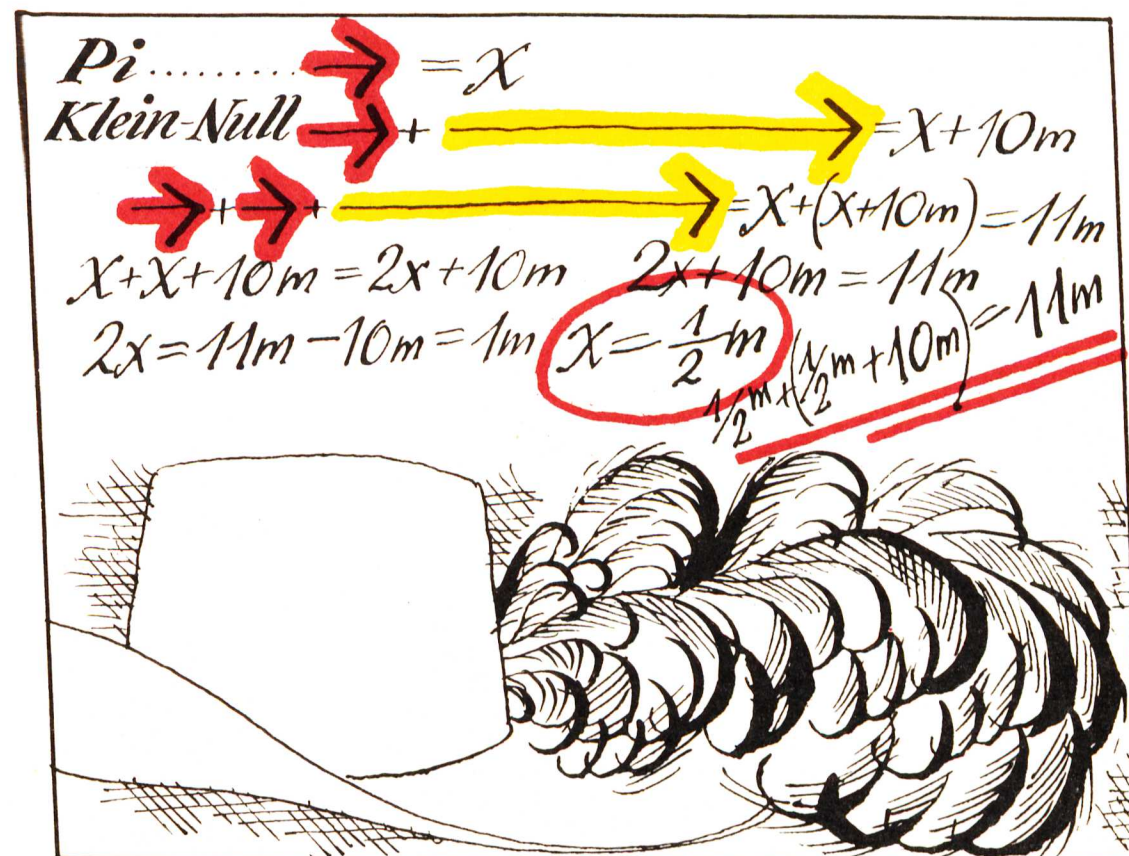 Pi.......... → = X
Klein-Null → + → = X + 10m
→ + → + → = X+(X+10m) = 11m
X+X+10m = 2x+10m 2x+10m = 11m
2x = 11m - 10m = 1m X = 1/2 m
1/2 m + (1/2 m + 10m) = 11m